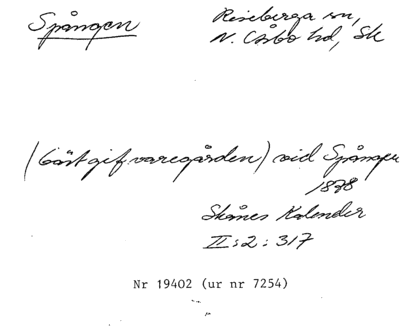 Spången
Riseberga sn,
N. Åsbo hd, Sk
(Gästgifvaregården) vid Spången
1878
Skånes Kalender
II:2:317
Nr 19402 (ur nr 7254)